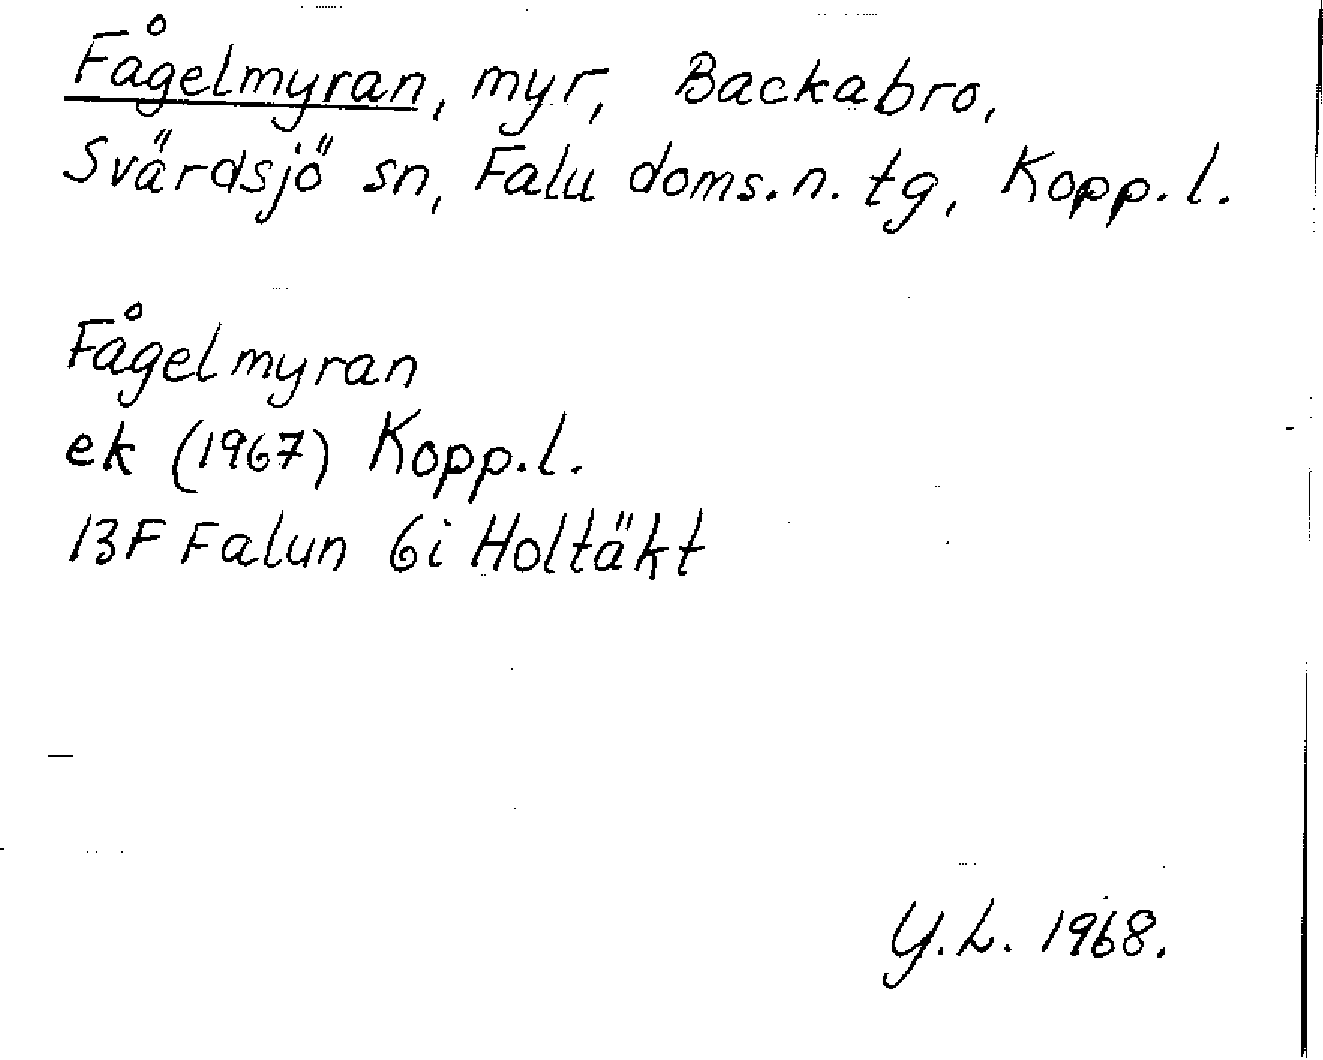 Fågelmyran, myr, Backabro,
Svärdsjö sn, Falu doms.n. tg, Kopp.l.
Fågelmyran
ek (1967) Kopp.l.
13F Falun 6i Holtäkt
Y.L. 1968.